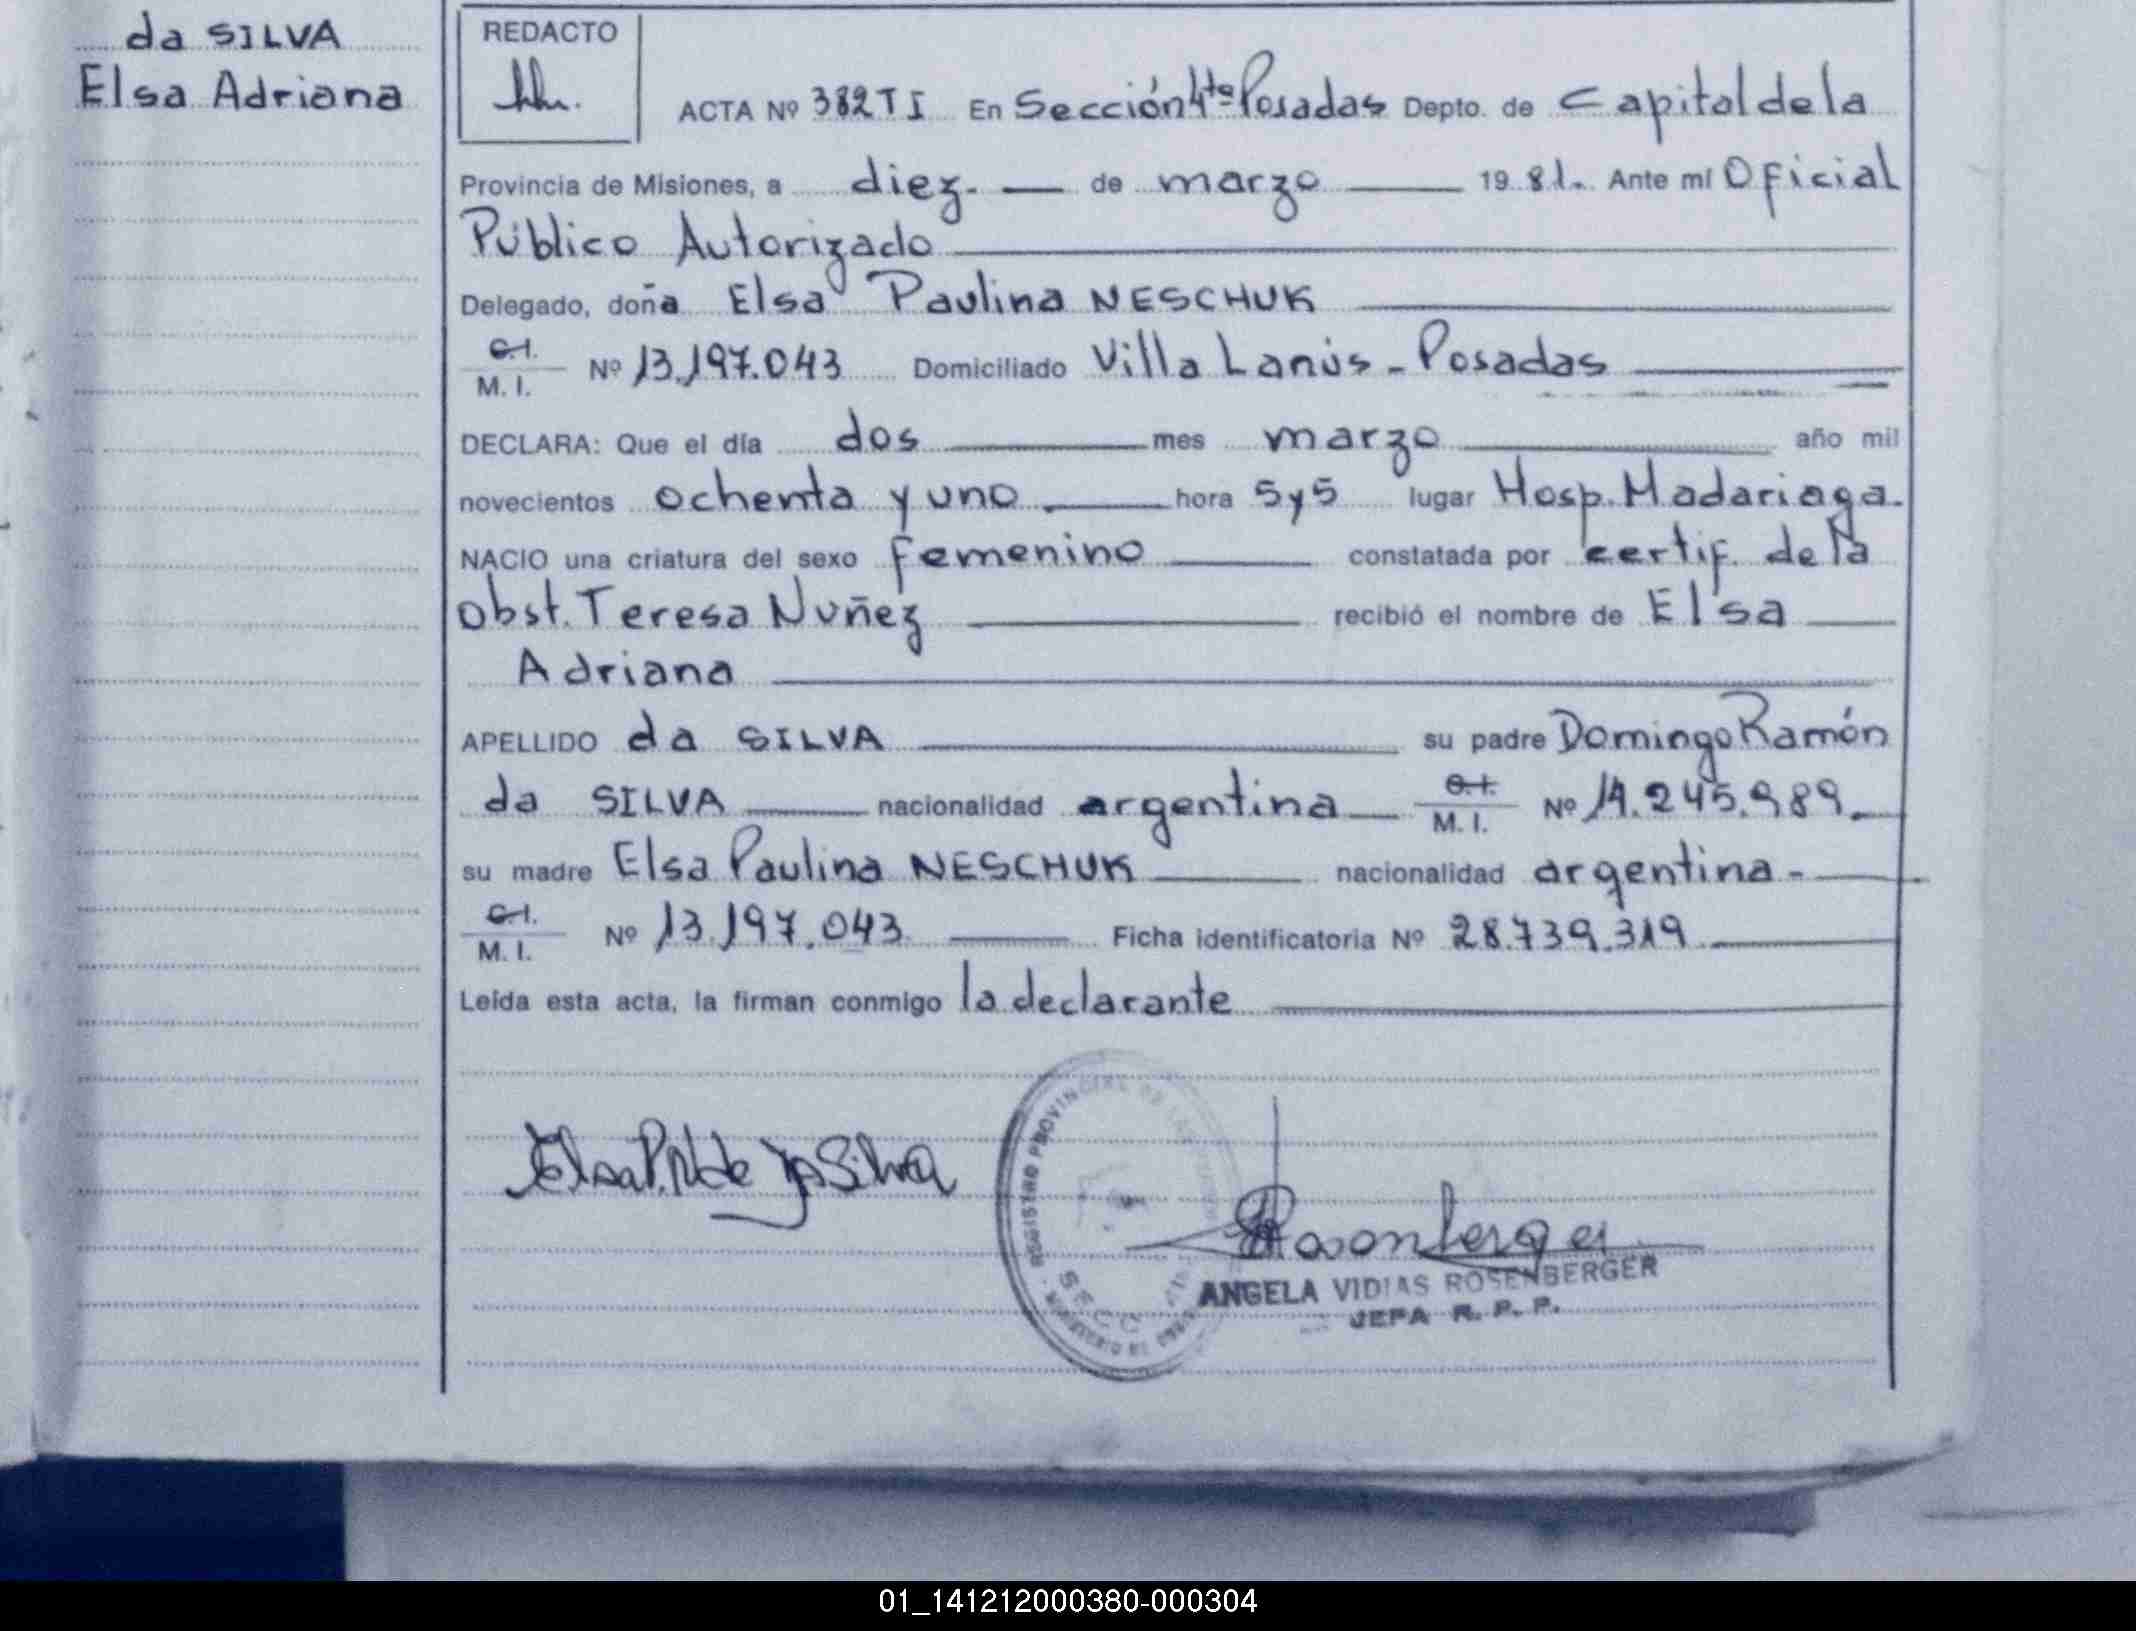 da SILVA
Elsa Adriana
REDACTO
ACTA Nº 382 T I En Sección 4ta Posadas Depto. de Capital de la
Provincia de Misiones, a diez. de marzo 1981. Ante mí Oficial
Público Autorizado
Delegado, doña Elsa Paulina NESCHUK
C.I.
M. I. Nº 13.197.043 Domiciliado Villa Lanús - Posadas
DECLARA: Que el día dos mes marzo año mil
novecientos ochenta y uno hora 5 y 5 lugar Hosp. Madariaga.
NACIO una criatura del sexo femenino constatada por certif. de la
obst. Teresa Nuñez recibió el nombre de Elsa
Adriana
APELLIDO da SILVA su padre Domingo Ramón
da SILVA nacionalidad argentina C.I. M. I. Nº 14.245.989.
su madre Elsa Paulina NESCHUK nacionalidad argentina -
C.I.
M. I. Nº 13.197.043 Ficha identificatoria Nº 28.739.319
Leída esta acta, la firman conmigo la declarante
Elsa P. N de da Silva
REGISTRO PROVINCIAL DE
SECC
Rosenberger
ANGELA VIDIAS ROSENBERGER
JEFA R. P. P.
01_141212000380-000304